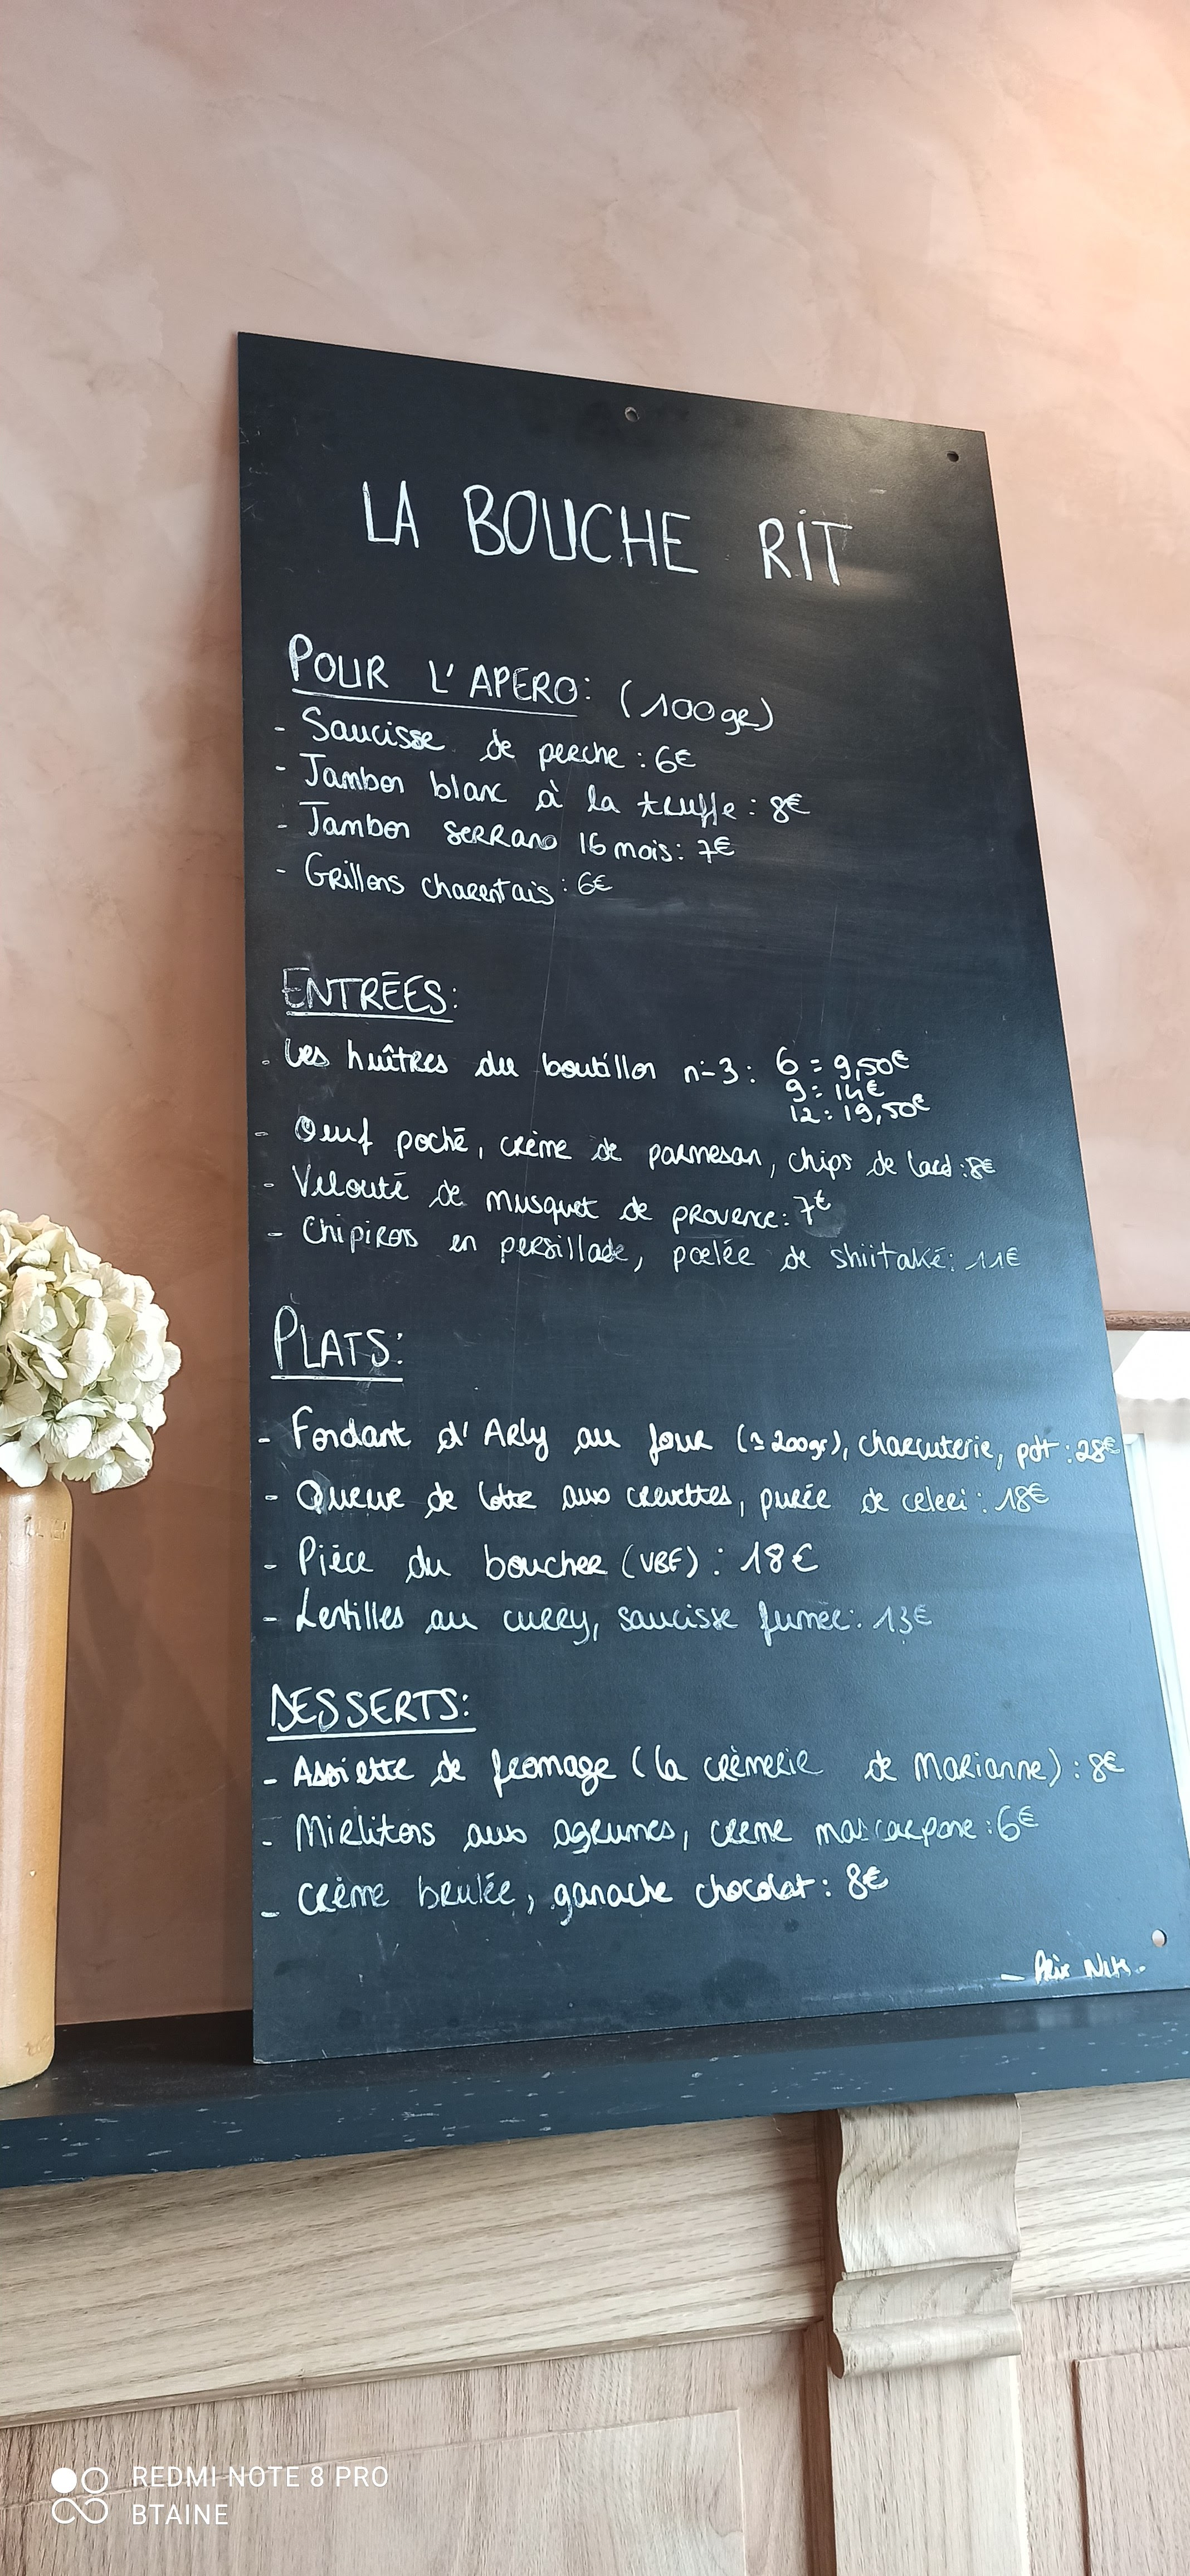 LA BOUCHE RIT
POUR L'APERO: (100gr)
- Saucisse de perche : 6€
- Jambon blanc à la truffe : 8€
- Jambon serrano 16 mois : 7€
- Grillons charentais : 6€
ENTRÉES:
- Les huîtres du boutillon n-3 : 6 = 9,50€
9 = 14€
12 : 19,50€
- Oeuf poché, crème de parmesan, chips de lard : 8€
- Velouté de musquet de provence : 7€
- Chipirons en persillade, poelée de shiitaké : 11€
PLATS:
- Fondant d'Arly au four (≃ 200gr), charcuterie, pdt : 28€
- Queue de lotte aux crevettes, purée de celeri : 18€
- Pièce du boucher (VBF) : 18€
- Lentilles au curry, saucisse fumée : 13€
DESSERTS:
- Assiette de fromage (la crèmerie de Marianne) : 8€
- Mirlitons aux agrumes, creme mascarpone : 6€
- Crème brulée, ganache chocolat : 8€
- Prix Nets -
REDMI NOTE 8 PRO
BTAINE